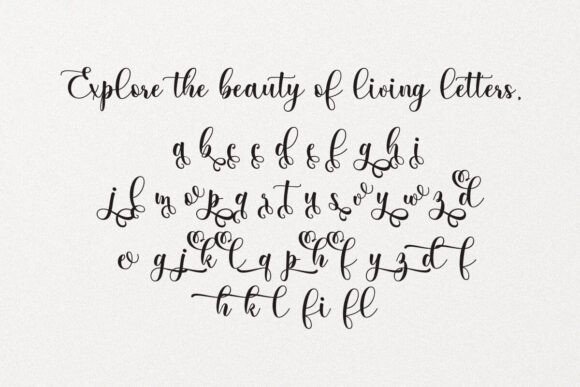 Explore the beauty of living letters,
a b c c d e f g h i
j l m o p q r t u s v y w z d
o g j k l q p h f y z d f
h k l fi fl